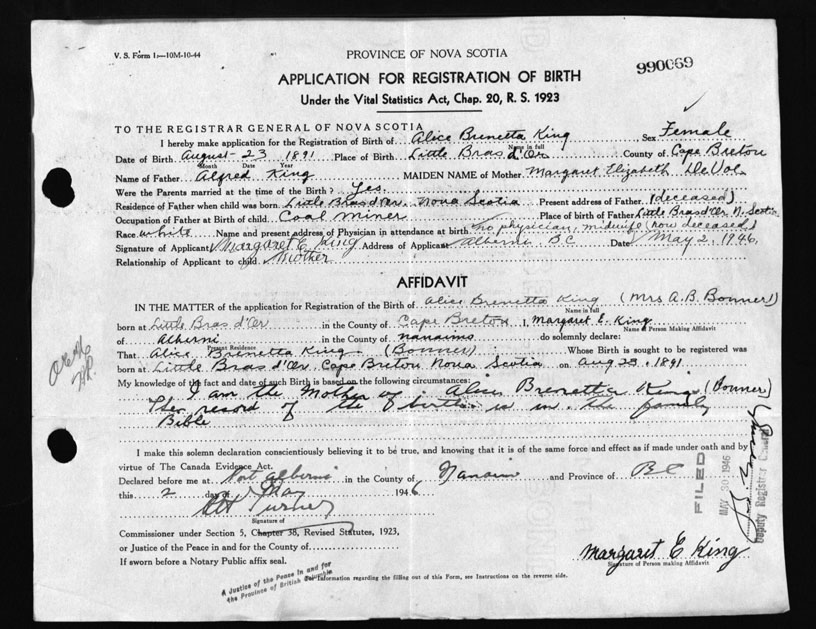 V. S. Form 1—10M-10-44
PROVINCE OF NOVA SCOTIA
990069
APPLICATION FOR REGISTRATION OF BIRTH
Under the Vital Statistics Act, Chap. 20, R. S. 1923
TO THE REGISTRAR GENERAL OF NOVA SCOTIA
I hereby make application for the Registration of Birth of Alice Brenetta King, Sex Female
Name in full
Date of Birth August 23 1891 Place of Birth Little Bras d'Or County of Cape Breton
Month Date Year
Name of Father Alfred King MAIDEN NAME of Mother Margaret Elizabeth
Were the Parents married at the time of the Birth? Yes.
Residence of Father when child was born Little Bras d'Or Nova Scotia Present address of Father (deceased)
Occupation of Father at Birth of child Coal miner Place of birth of Father Little Bras d'Or N. Scotia
Race white Name and present address of Physician in attendance at birth no physician, midwife (now deceased)
Signature of Applicant Margaret E King Address of Applicant Alberni B.C Date May 2, 1946,
Relationship of Applicant to child Mother
AFFIDAVIT
IN THE MATTER of the application for Registration of the Birth of Alice Brenetta King (Mrs A. B. Bonner)
Name in full
born at Little Bras d'Or in the County of Cape Breton I, Margaret E. King
Name of Person Making Affidavit
of Alberni in the County of nanaimo do solemnly declare:
Present Residence
That Alice Brenetta King (Bonner) Whose Birth is sought to be registered was
born at Little Bras d'Or, Cape Breton Nova Scotia on Aug 23, 1891
My knowledge of the fact and date of such Birth is based on the following circumstances:
I am the Mother of Alice Brenetta King (Bonner)
The record of the birth is in the family
Bible
I make this solemn declaration conscientiously believing it to be true, and knowing that it is of the same force and effect as if made under oath and by
virtue of The Canada Evidence Act.
Declared before me at Port Alberni in the County of Nanaimo and Province of BC
this 2 day of May 1946
Turner
Signature of
Commissioner under Section 5, Chapter 38, Revised Statutes, 1923,
or Justice of the Peace in and for the County of
If sworn before a Notary Public affix seal.
A Justice of the Peace in and for
the Province of British Columbia
For Information regarding the filling out of this Form, see Instructions on the reverse side.
Margaret E King
Signature of Person making Affidavit
FILED
MAY 30 1946
Deputy Registrar General